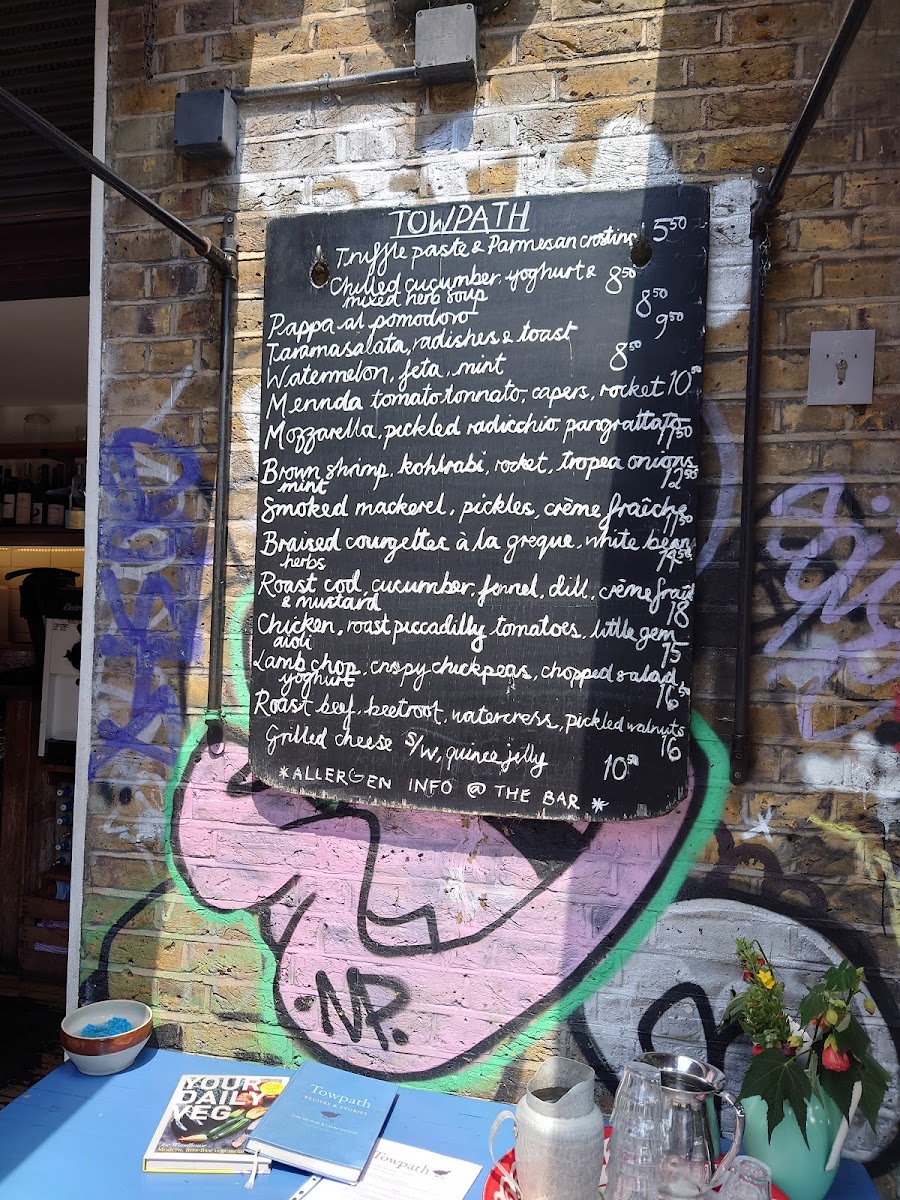 TOWPATH
Truffle paste & Parmesan crostini 5.50
Chilled cucumber, yoghurt & 8.50
mixed herb soup
Pappa al pomodoro 8.50
Taramasalata, radishes & toast 9.50
Watermelon, feta, mint 8.50
Merinda tomato tonnato, capers, rocket 10.50
Mozzarella, pickled radicchio, pangrattato
11.50
Brown shrimp, kohlrabi, rocket, tropea onions
mint 12.50
Smoked mackerel, pickles, crème fraîche
11.50
Braised courgettes à la greque, white beans
herbs 14.50
Roast cod, cucumber, fennel, dill, crème fraîche
& mustard 18
Chicken, roast piccadilly tomatoes, little gem
aioli 15
Lamb chop, crispy chickpeas, chopped salad
yoghurt 16.50
Roast beef, beetroot, watercress, pickled walnuts
16
Grilled cheese s/w, quince jelly 10.50
*ALLERGEN INFO @ THE BAR *
NP.
YOUR
DAILY
VEG
Towpath
RECIPES & STORIES
Towpath